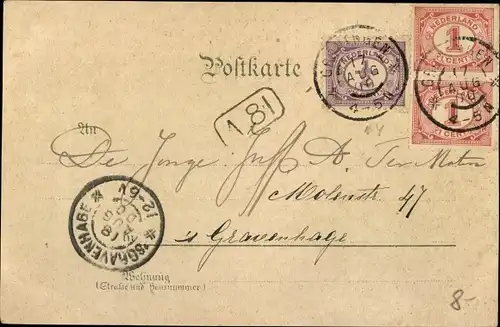 Postkarte
NEDERLAND
1 CENT
NEDERLAND
1 CENT
17 AUG
4-5N
181
An
De Jonge Juff A. Ter
Molenstr 47
's Gravenhage
'SGRAVENHAGE
Wohnung
(Straße und Hausnummer)
8-